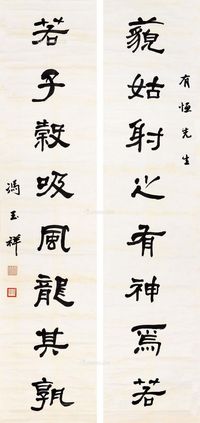 有恒先生
藐姑射之有神焉若
若子穀吸風龍其孰
馮玉祥